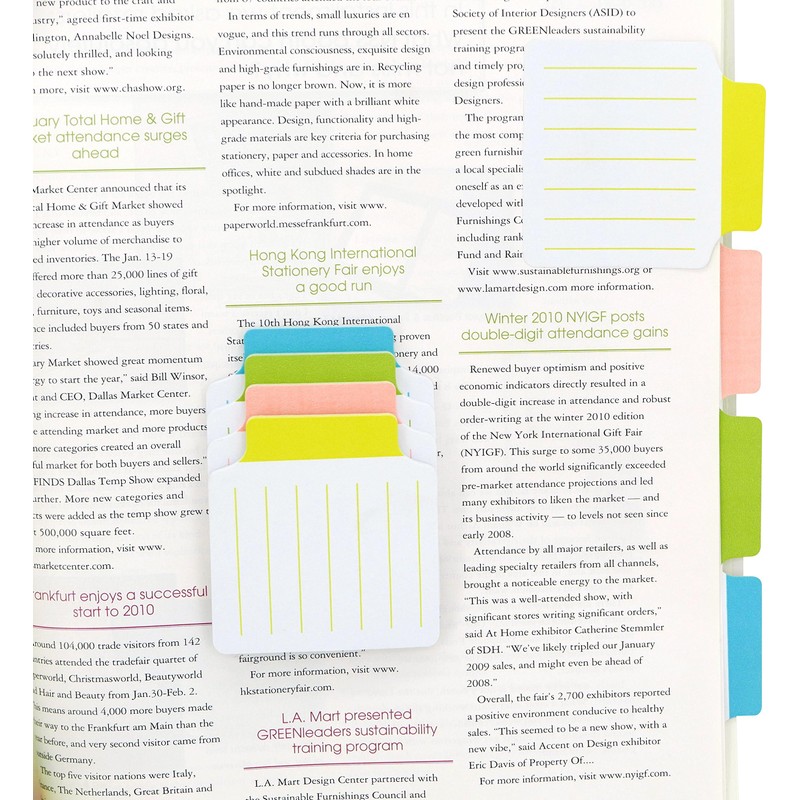 new product to the craft and
ustry,” agreed first-time exhibitor
lington, Annabelle Noel Designs.
solutely thrilled, and looking
o the next show.”
n more, visit www.chashow.org.
uary Total Home & Gift
ket attendance surges
ahead
Market Center announced that its
tal Home & Gift Market showed
ncrease in attendance as buyers
higher volume of merchandise to
ed inventories. The Jan. 13-19
ffered more than 25,000 lines of gift
decorative accessories, lighting, floral,
, furniture, toys and seasonal items.
nce included buyers from 50 states and
tries.
ary Market showed great momentum
rgy to start the year,” said Bill Winsor,
t and CEO, Dallas Market Center.
ng increase in attendance, more buyers
e attending market and more products
more categories created an overall
ful market for both buyers and sellers.”
FINDS Dallas Temp Show expanded
urther. More new categories and
ts were added as the temp show grew t
t 500,000 square feet.
more information, visit www.
marketcenter.com.
ankfurt enjoys a successful
start to 2010
ound 104,000 trade visitors from 142
ntries attended the tradefair quartet of
perworld, Christmasworld, Beautyworld
d Hair and Beauty from Jan.30-Feb. 2.
his means around 4,000 more buyers made
eir way to the Frankfurt am Main than the
ar before, and very second visitor came from
side Germany.
The top five visitor nations were Italy,
nce, The Netherlands, Great Britain and
In terms of trends, small luxuries are en
vogue, and this trend runs through all sectors.
Environmental consciousness, exquisite design
and high-grade furnishings are in. Recycling
paper is no longer brown. Now, it is more
like hand-made paper with a brilliant white
appearance. Design, functionality and high-
grade materials are key criteria for purchasing
stationery, paper and accessories. In home
offices, white and subdued shades are in the
spotlight.
For more information, visit www.
paperworld.messefrankfurt.com.
Hong Kong International
Stationery Fair enjoys
a good run
The 10th Hong Kong International
Stat
g proven
itse
onery and
14,000
fairground is so convenient.”
For more information, visit www.
hkstationeryfair.com.
L.A. Mart presented
GREENleaders sustainability
training program
L.A. Mart Design Center partnered with
the Sustainable Furnishings Council and
Society of Interior Designers (ASID) to
present the GREENleaders sustainability
training progra
and timely proj
design professi
Designers.
The program
the most comp
green furnishin
a local specialis
oneself as an e
developed with
Furnishings Co
including rank
Fund and Rain
Visit www.sustainablefurnishings.org or
www.lamartdesign.com more information.
Winter 2010 NYIGF posts
double-digit attendance gains
Renewed buyer optimism and positive
economic indicators directly resulted in a
double-digit increase in attendance and robust
order-writing at the winter 2010 edition
of the New York International Gift Fair
(NYIGF). This surge to some 35,000 buyers
from around the world significantly exceeded
pre-market attendance projections and led
many exhibitors to liken the market — and
its business activity — to levels not seen since
early 2008.
Attendance by all major retailers, as well as
leading specialty retailers from all channels,
brought a noticeable energy to the market.
“This was a well-attended show, with
significant stores writing significant orders,”
said At Home exhibitor Catherine Stemmler
of SDH. “We’ve likely tripled our January
2009 sales, and might even be ahead of
2008.”
Overall, the fair’s 2,700 exhibitors reported
a positive environment conducive to healthy
sales. “This seemed to be a new show, with a
new vibe,” said Accent on Design exhibitor
Eric Davis of Property Of....
For more information, visit www.nyigf.com.